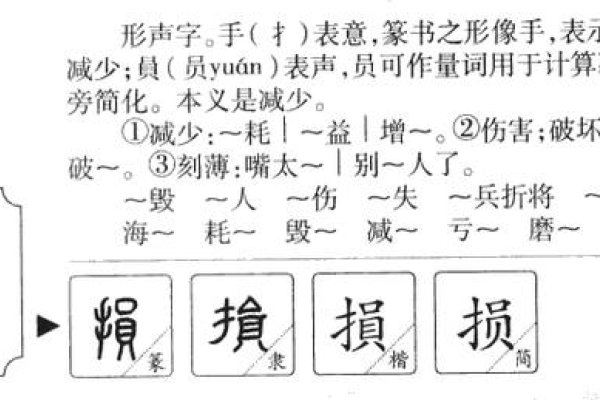 形声字。手(扌)表意,篆书之形像手,表示
减少;員(员yuán)表声,员可作量词用于计算
旁简化。本义是减少。
①减少:~耗|~益|增~。②伤害;破坏
破~。③刻薄:嘴太~|别~人了。
~毁 ~人 ~伤 ~失 ~兵折将 ~
海~ 耗~ 毁~ 减~ 亏~ 磨~
損篆 損隶 損楷 损简